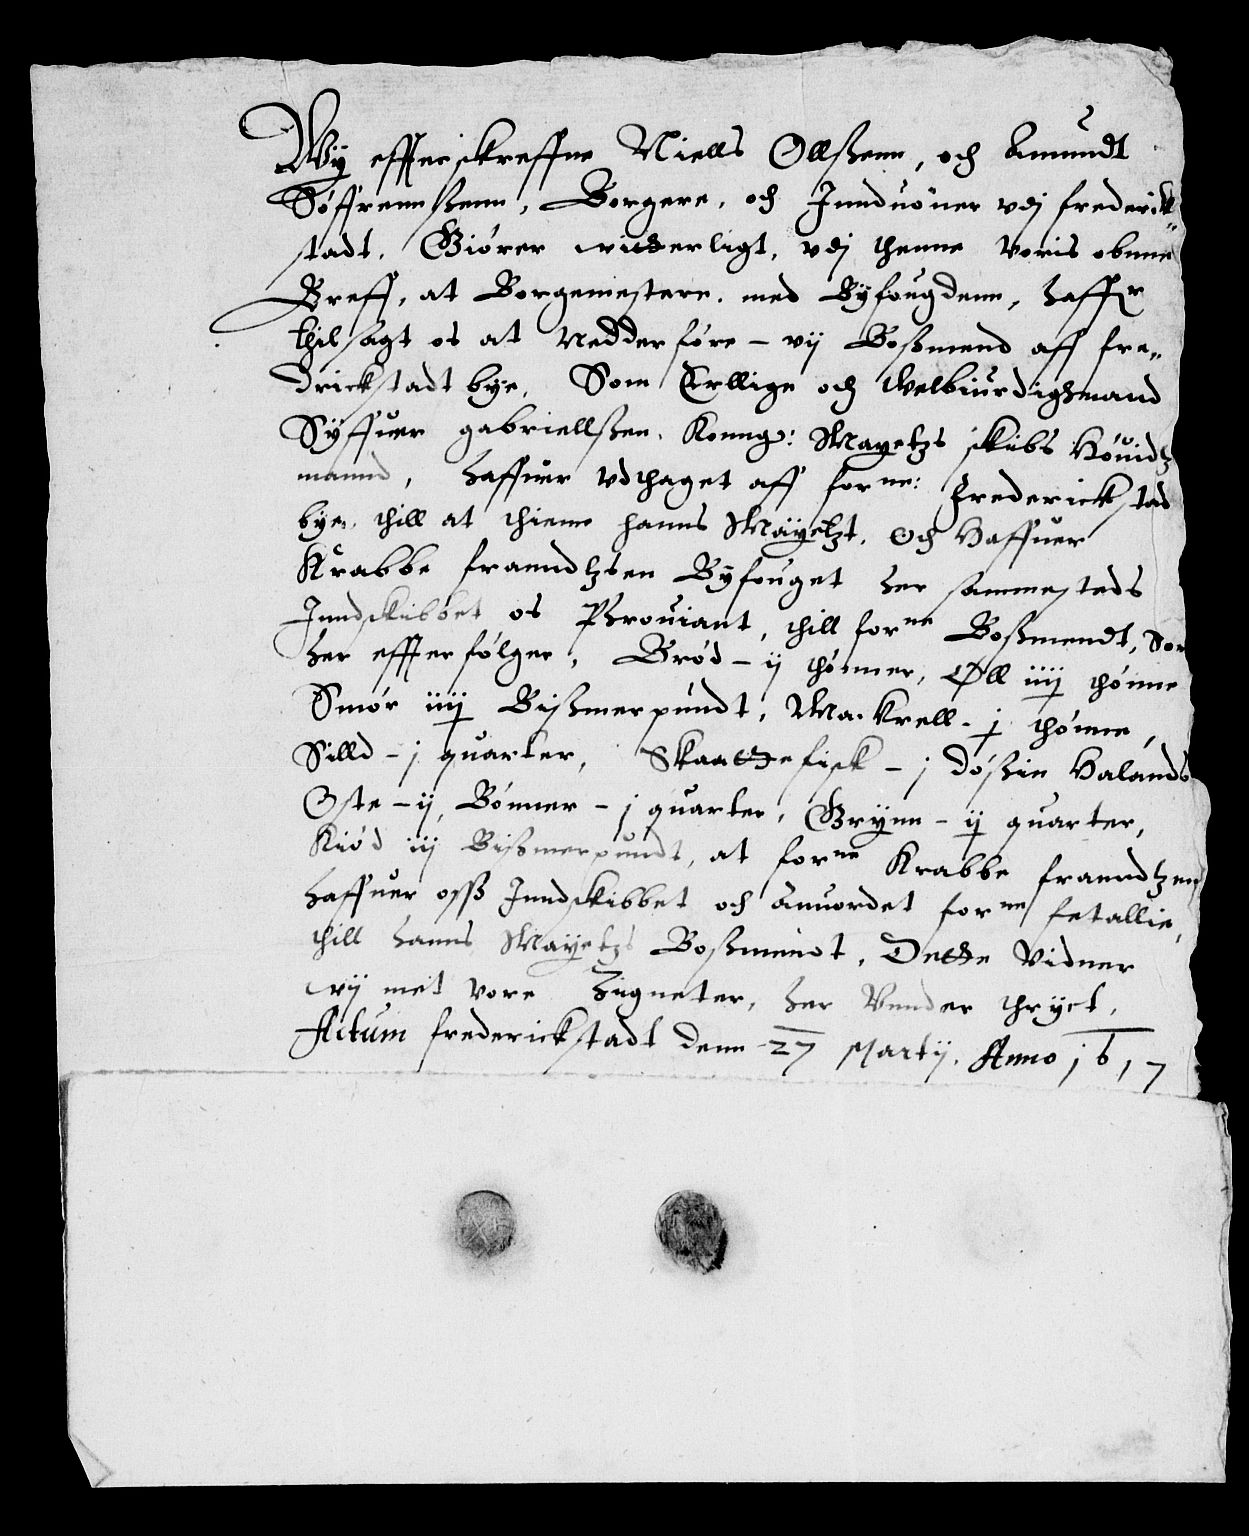 Wy effterskreffne Niells Ollßenn, och Amundt
Søffrennßenn, Borgere, och Innduöner vdj frederick„
stadt, Giörer witterligt, vdj thenne voris obnne
Breff, at Borgemestere, med Byfougdenn, haffr
thilsagt os at Nedderföre – vij Boßmend aff fre„
drickstadt bye, Som Erllige och welbiurdighmand
Syffuer gabriellßen, Konng: Mayetzs skibs Höuidtz
mannd, haffuer vdthaget aff forne: Frederickstad
bye, thill at thiene hanns Mayetzt, Och Haffuer
Krabbe franndtzsen Byfouget her sammesteds
Inndskibbet os Phrouiant, thill forne Boßmendt, Som
her effterfölger, Bröd – ij thönner, Øll iiij thönne
Smör iiij Bißmerpundt, Mackrell – j thönne,
Silld – j quarter, Skaattefisk – j dößin Halands
Oste – ij, Bönner – j quarter, Grynn – ij quarter,
Kiöd iij Bißmerpundt, at forne Krabbe franndtzen
haffuer oss Inndskibbet och Anuordet forne fetallie,
thill hanns Mayetzs Boßmendt, Dette Vidner
wij met vore Zigneter, her Vnnder thryct,
Actum frederickstadt denn 27 Martij. Anno 1617